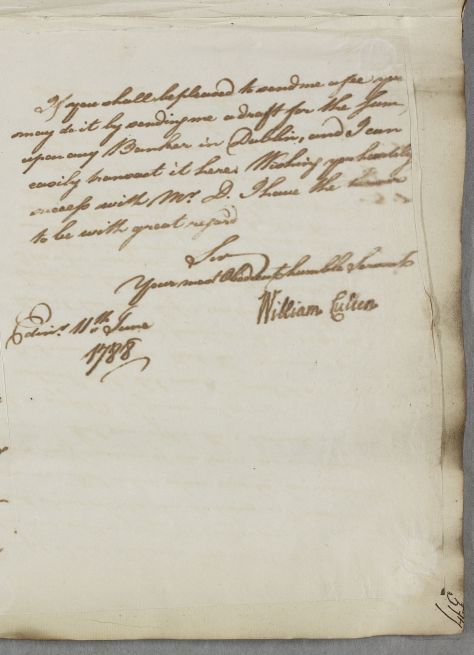 If you shall be pleased to send me a fee you
may do it by sending me a draft for the Sum
upon any Banker in Dublin, and I can
easily transact it here. Wishing you heartily
success with Mr. D. I have the honour
to be with great regard
Sir
Your most Obedient humble Servant
William Cullen
Edinr. 11th June
1788